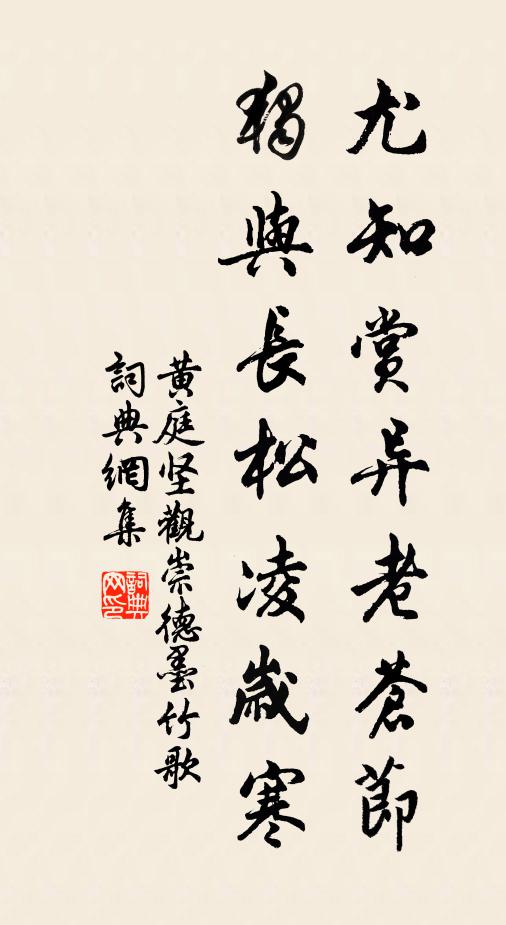 尤知賞异老蒼節
獨與長松凌歲寒
黄庭坚觀崇德墨竹歌
詞典網集
詞典网印